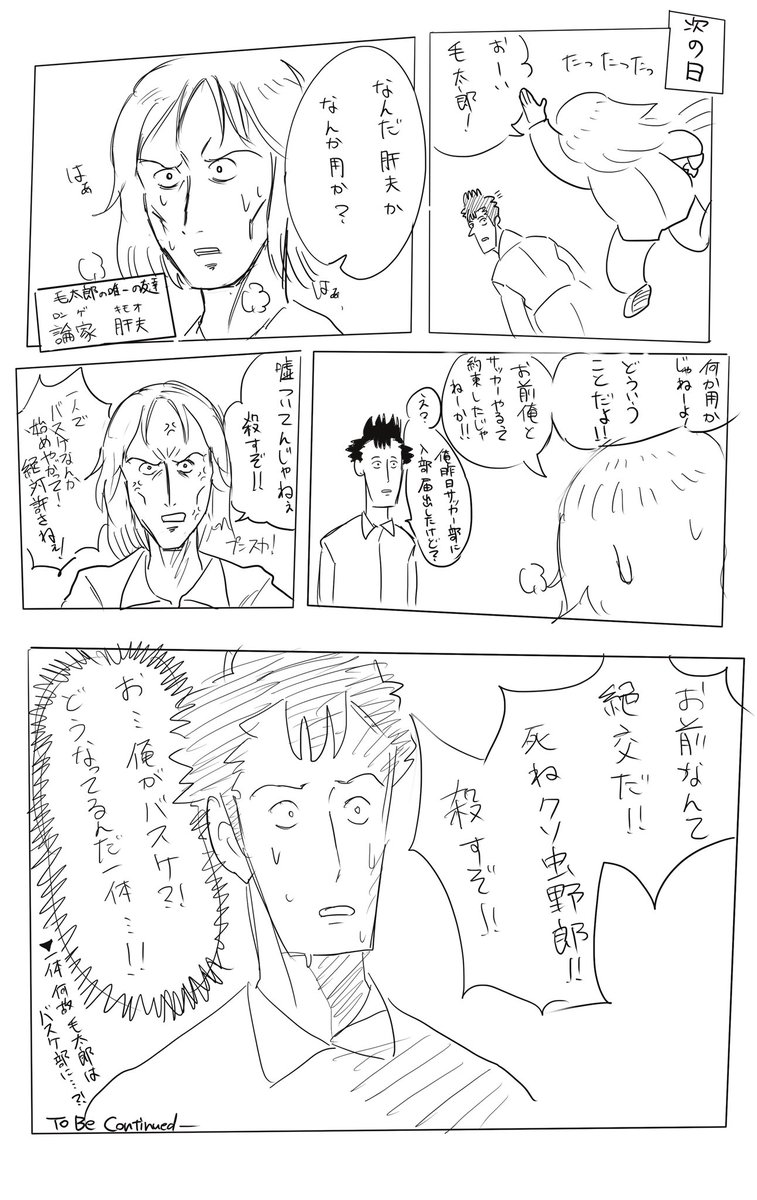 次の日
たったったっ
おーい
毛太郎!
なんだ 肝夫か
なんか用か?
はぁ
はぁ、
毛太郎の唯一の友達
ロンゲ キモオ
論家 肝夫
何か用か
じゃねーよ
どういう
ことだよ!!
お前俺と
サッカーやるって
約束したじゃ
ねーか!!
え?
俺昨日サッカー部に
入部届出したけど?
嘘ついてんじゃねぇ
殺すぞ!!
プンスカ!
一人で
バスケなんか
始めやがって!
絶対許さねぇ!
お前なんて
絶交だ!!
死ねクソ虫野郎!!
殺すぞ!!
お…俺がバスケ?!
どうなってるんだ一体…!!
▼一体何故毛太郎は
バスケ部に…?!
To Be Continued—